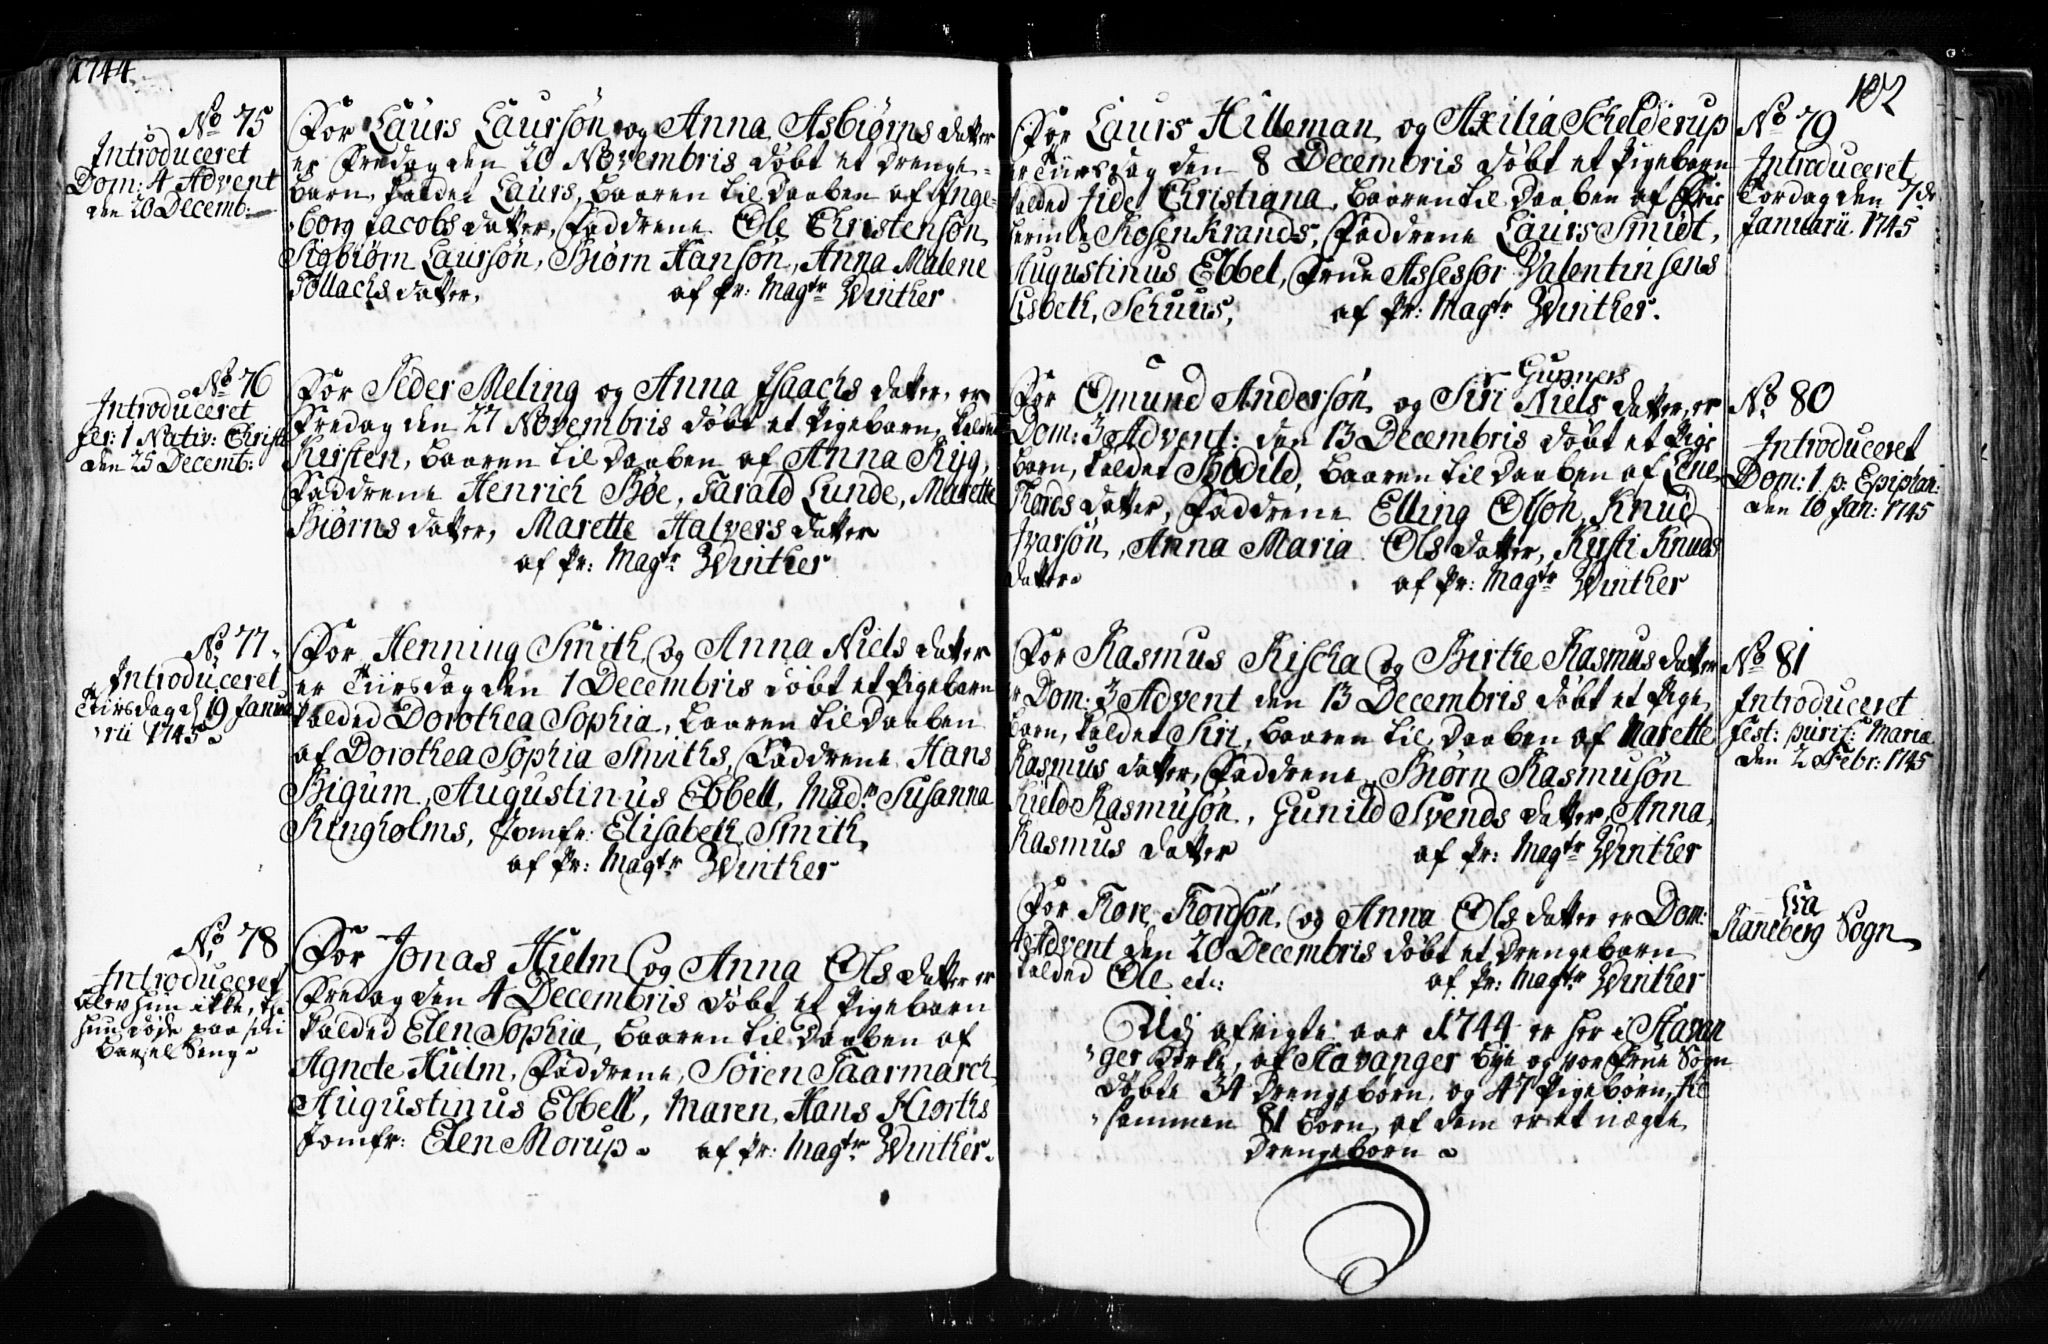 1744.
No 75
Introduceret
Dom: 4 Advent
den 20 Decemb:
For Laurs Laursøn og Anna Asbiørns datter
er Fredag den 20 Novembris døbt et drenge-
barn, kaldet Laurs, baaren til daaben af Inge-
borg Jacobs datter, Faddrene Ole Christensøn,
Sigbiørn Laursøn, Biørn Hansøn, Anna Malene
Tollachs datter, af Pr: Magtr Winther
No 76
Introduceret
fer: 1 Nativ: Christi
den 25 Decemb:
For Peder Meling og Anna Isaachs datter, er
Fredag den 27 Novembris døbt et Pigebarn, kaldet
Kirsten, baaren til daaben af Anna Ryg,
Faddrene Henrich Bøe, Tarald Lunde, Marette
Biørns datter, Marette Halvers datter
af Pr: Magtr Winther
No 77
Introduceret
Tiirsdag d 19 Janua
rii 1745
For Henning Smith og Anna Niels datter
er Tiirsdag den 1 Decembris døbt et Pigebarn
kalded Dorothea Sophia, baaren til daaben
af Dorothea Sophia Smiths, Faddrene Hans
Bigum, Augustinus Ebbell, Madm Susanna
Ringholms, Jomfr: Elisabeth Smith,
af Pr: Magtr Winther
No 78
Introduceret
blev hun ikke, thi
hun døde paa sin
barsel Seng
For Jonas Hielm og Anna Ols datter er
Fredag den 4 Decembris døbt et Pigebarn
kalded Elen Sophia, baaren til daaben af
Agnete Hielm, Faddrene, Søren Taarmarch,
Augustinus Ebbell, Maren Hans Hiorths
Jomfr: Elen Morup af Pr: Magtr Winther.
102
For Laurs Hilleman og Axilia Schelderup
er Tiirsdag den 8 Decembris døbt et Pigebarn
kalded Christiana, baaren til daaben af
Rosenkrands, Faddrene Laurs Smidt,
Augustinus Ebbel, Frue Assessor Valentinsens
Lisbeth Schuus, af Pr: Magtr Winther.
No 79
Introduceret
Torsdag den 7de
Januarii 1745
Gunners
For Omund Andersøn og Siri Niels datter, er
Dom: 3 Advent: den 13 Decembris døbt et Pige
barn, kaldet Bodild, baaren til daaben af Lene
Thords datter, Faddrene Elling Olsøn, Knud
Ivarsøn, Anna Maria Ols datter, Kirsti Knuds
datter af Pr: Magtr Winther
No 80
Introduceret
Dom: 1 p: Epiphan:
den 10 Jan: 1745
For Rasmus Kischa og Birthe Rasmus datter
er Dom: 3 Advent den 13 Decembris døbt et Pige
barn, kaldet Siri, baaren til daaben af Marette
Rasmus datter, Faddrene, Biørn Rasmusøn
Kield Rasmusøn, Gunild Svends datter, Anna
Rasmus datter af Pr: Magtr Winther
No 81
Introduceret
fest: purif: Maria
den 2 Febr: 1745
For Tore Tordsøn og Anna Ols datter er Dom:
4 Advent den 20 Decembris døbt et drengebarn
kalded Ole etc: af Pr: Magtr Winther
fra
Raneberg Sogn
Udj afvigte aar 1744 er her i Stavan
ger kirke, af Stavanger bye og vor Frue Sogn
døbte 34 drengebørn og 47 Pigebørn, til
sammen 81 børn, af dem er et uægte
drengebørn